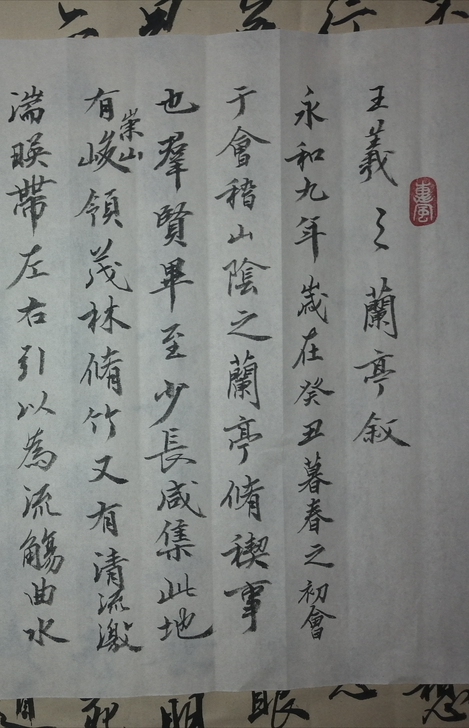 惠風
王羲之蘭亭叙
永和九年歲在癸丑暮春之初會
于會稽山陰之蘭亭脩禊事
也羣賢畢至少長咸集此地
有崇山峻領茂林脩竹又有清流激
湍暎帶左右引以為流觴曲水